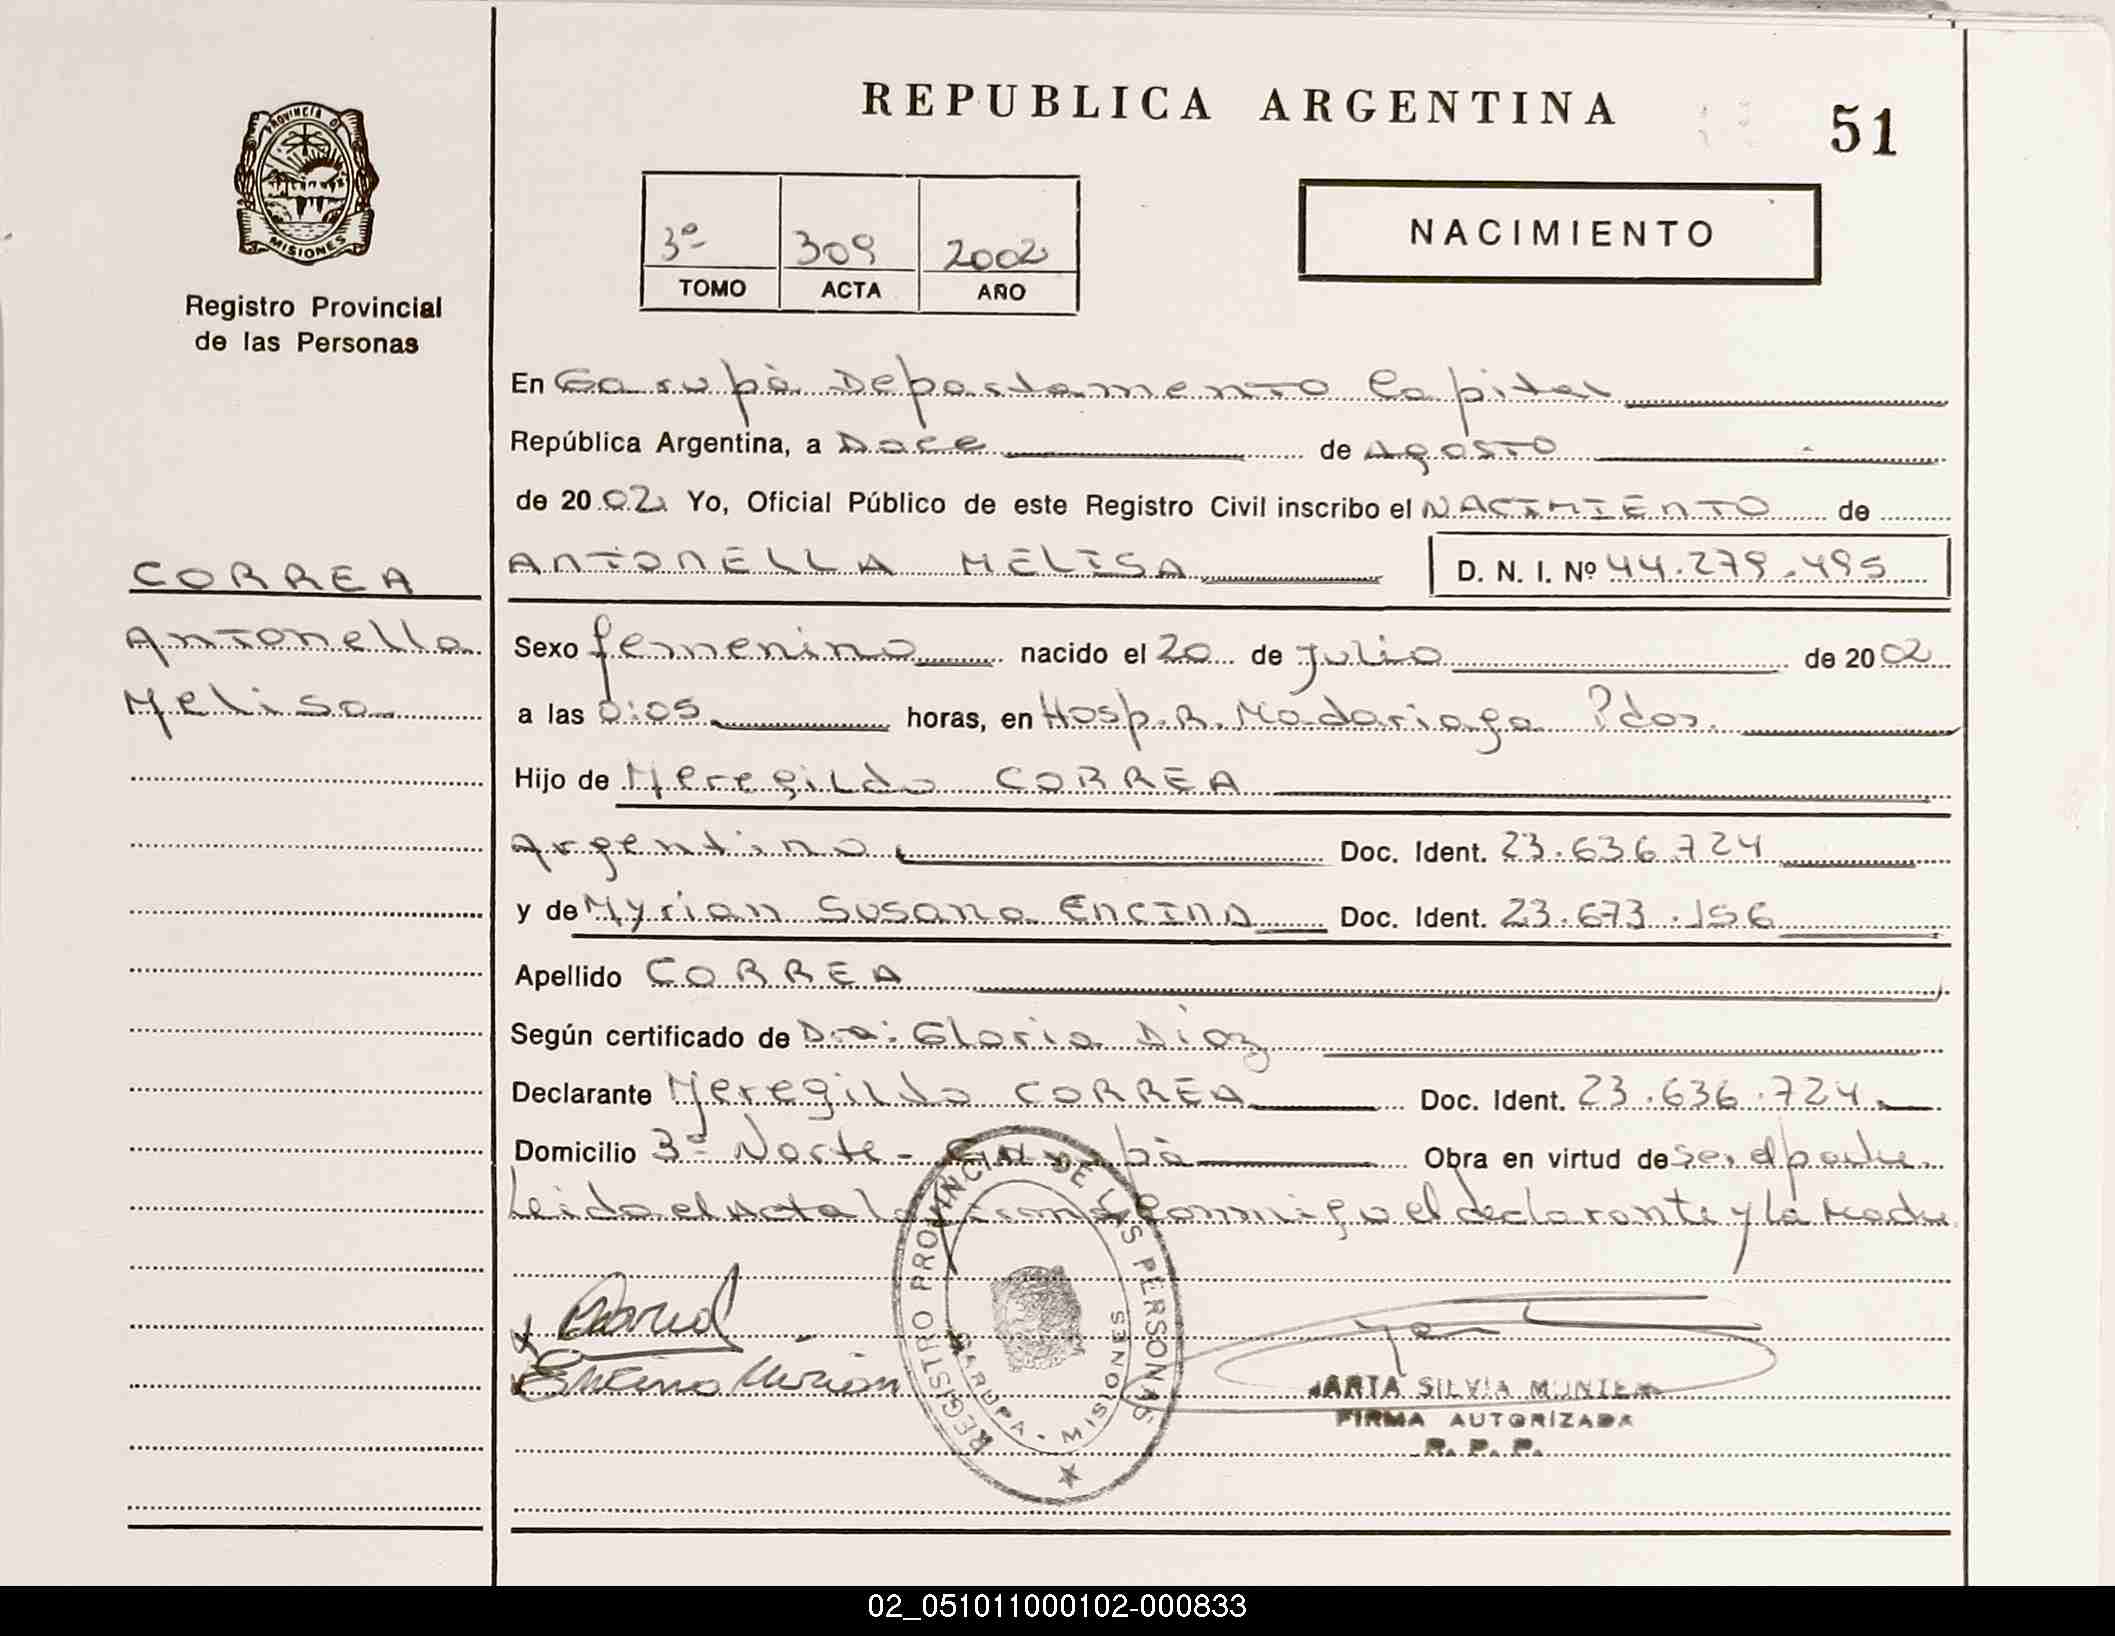 REPUBLICA ARGENTINA
51
PROVINCIA D
MISIONES
Registro Provincial
de las Personas
3º 309 2002
TOMO ACTA AÑO
NACIMIENTO
En Garupá Departamento Capital
República Argentina, a Doce de Agosto
de 2002 Yo, Oficial Público de este Registro Civil inscribo el NACIMIENTO de
ANTONELLA MELISA D. N. I. Nº 44.279.495
CORREA
Antonella
Melisa
Sexo femenino nacido el 20 de julio de 2002
a las 0:05 horas, en Hosp. R. Madariaga Pdas.
Hijo de Meregildo CORREA
Argentino Doc. Ident. 23.636.724
y de Myrian Susana ENCINA Doc. Ident. 23.673.156
Apellido CORREA
Según certificado de Dra: Gloria Diaz
Declarante Meregildo CORREA Doc. Ident. 23.636.724
Domicilio 3º Norte - Garupá Obra en virtud de ser el padre
Leida el Acta la firma conmigo el declarante y la Madre
REGISTRO PROVINCIAL DE LAS PERSONAS
GARUPA - MISIONES
Encina Mirian
ARTA SILVIA MUNIE
FIRMA AUTORIZADA
R. P. P.
02_051011000102-000833